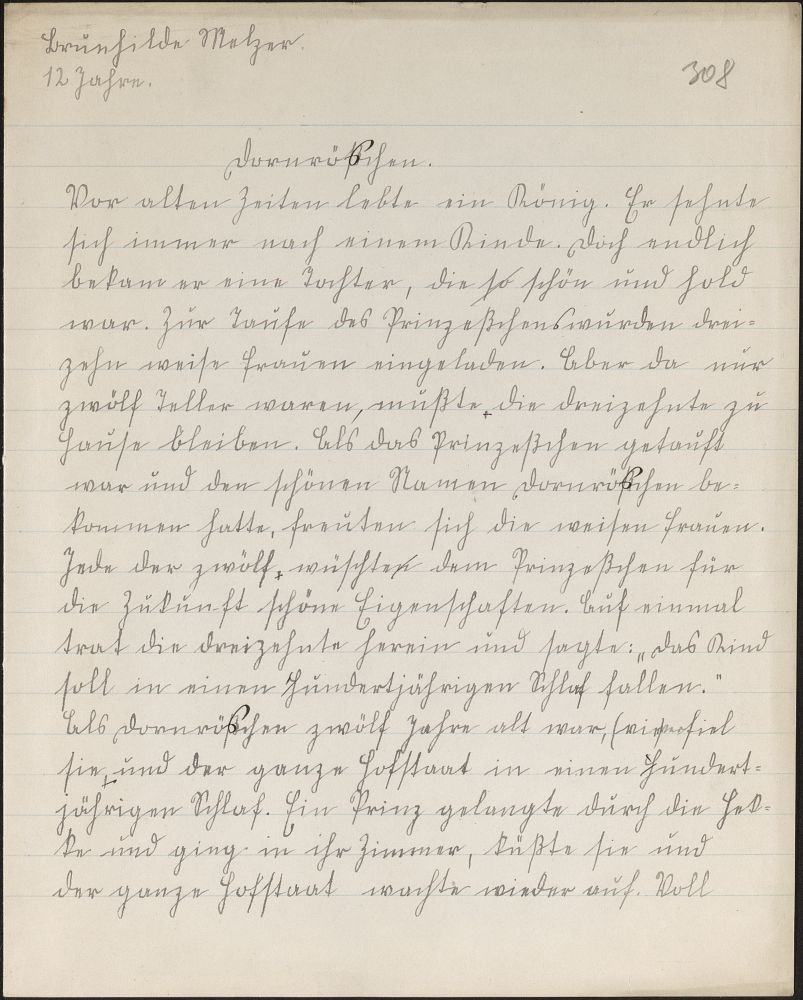 Brunhilde Melzer.
12 Jahre.
308
Dornrößchen.
Vor alten Zeiten lebte ein König. Er sehnte
sich immer nach einem Kinde. Doch endlich
bekam er eine Tochter, die so schön und hold
war. Zur Taufe des Prinzeßchens wurden drei=
zehn weise Frauen eingeladen. Aber da nur
zwölf Teller waren, mußte die dreizehnte zu
Hause bleiben. Als das Prinzeßchen getauft
war und den schönen Namen Dornrößchen be=
kommen hatte, freuten sich die weisen Frauen.
Jede der zwölf, wüschten dem Prinzeßchen für
die Zukunft schöne Eigenschaften. Auf einmal
trat die dreizehnte herein und sagte: „Das Kind
soll in einen hundertjährigen Schlaf fallen."
Als Dornrößchen zwölf Jahre alt war, fiel
sie, und der ganze Hofstaat in einen hundert=
jährigen Schlaf. Ein Prinz gelangte durch die Hek=
ke und ging in ihr Zimmer, küßte sie und
der ganze Hofstaat wachte wieder auf. Voll